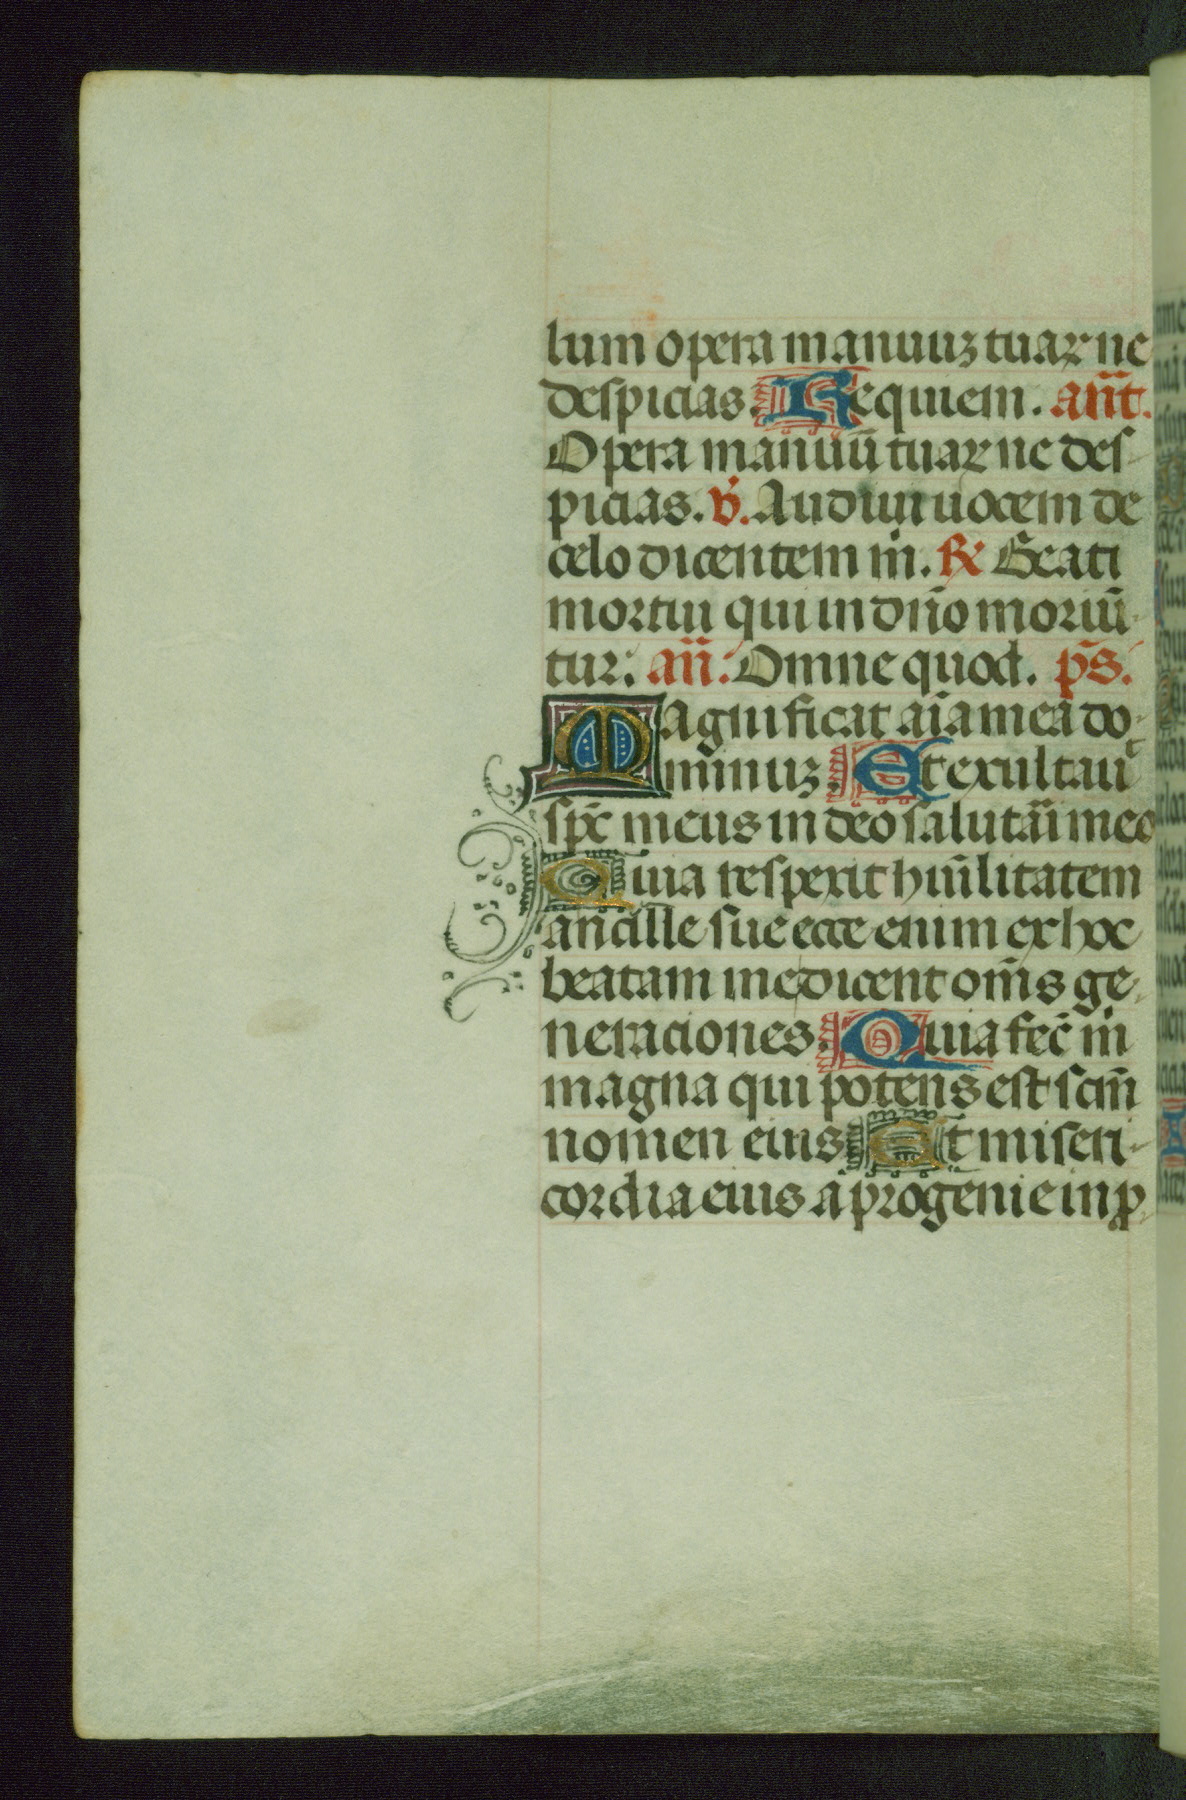 lum opera manuuꝫ tuaꝝ ne
despicias. Requiem. añt.
Opera manuū tuaꝝ ne des-
picias. v̓. Audiui uocem de
celo dicentem m̓. ℟ Beati
mortui qui in dño moriū-
tur: añ: Omne quod. ps̄.
Magnificat aīa meā do-
minuꝫ. Et exultauͭ
spc̄ meus in deo salutār̄i meo
Quia respexit hūīlitatem
ancille sue ecce enim ex hoc
beatam me dicent om̄s ge-
neraciones. Quia fec̄ m̓
magna qui potens est scm̄
nomen eius. Et miseri-
cordia eius a progenie in ꝓ-